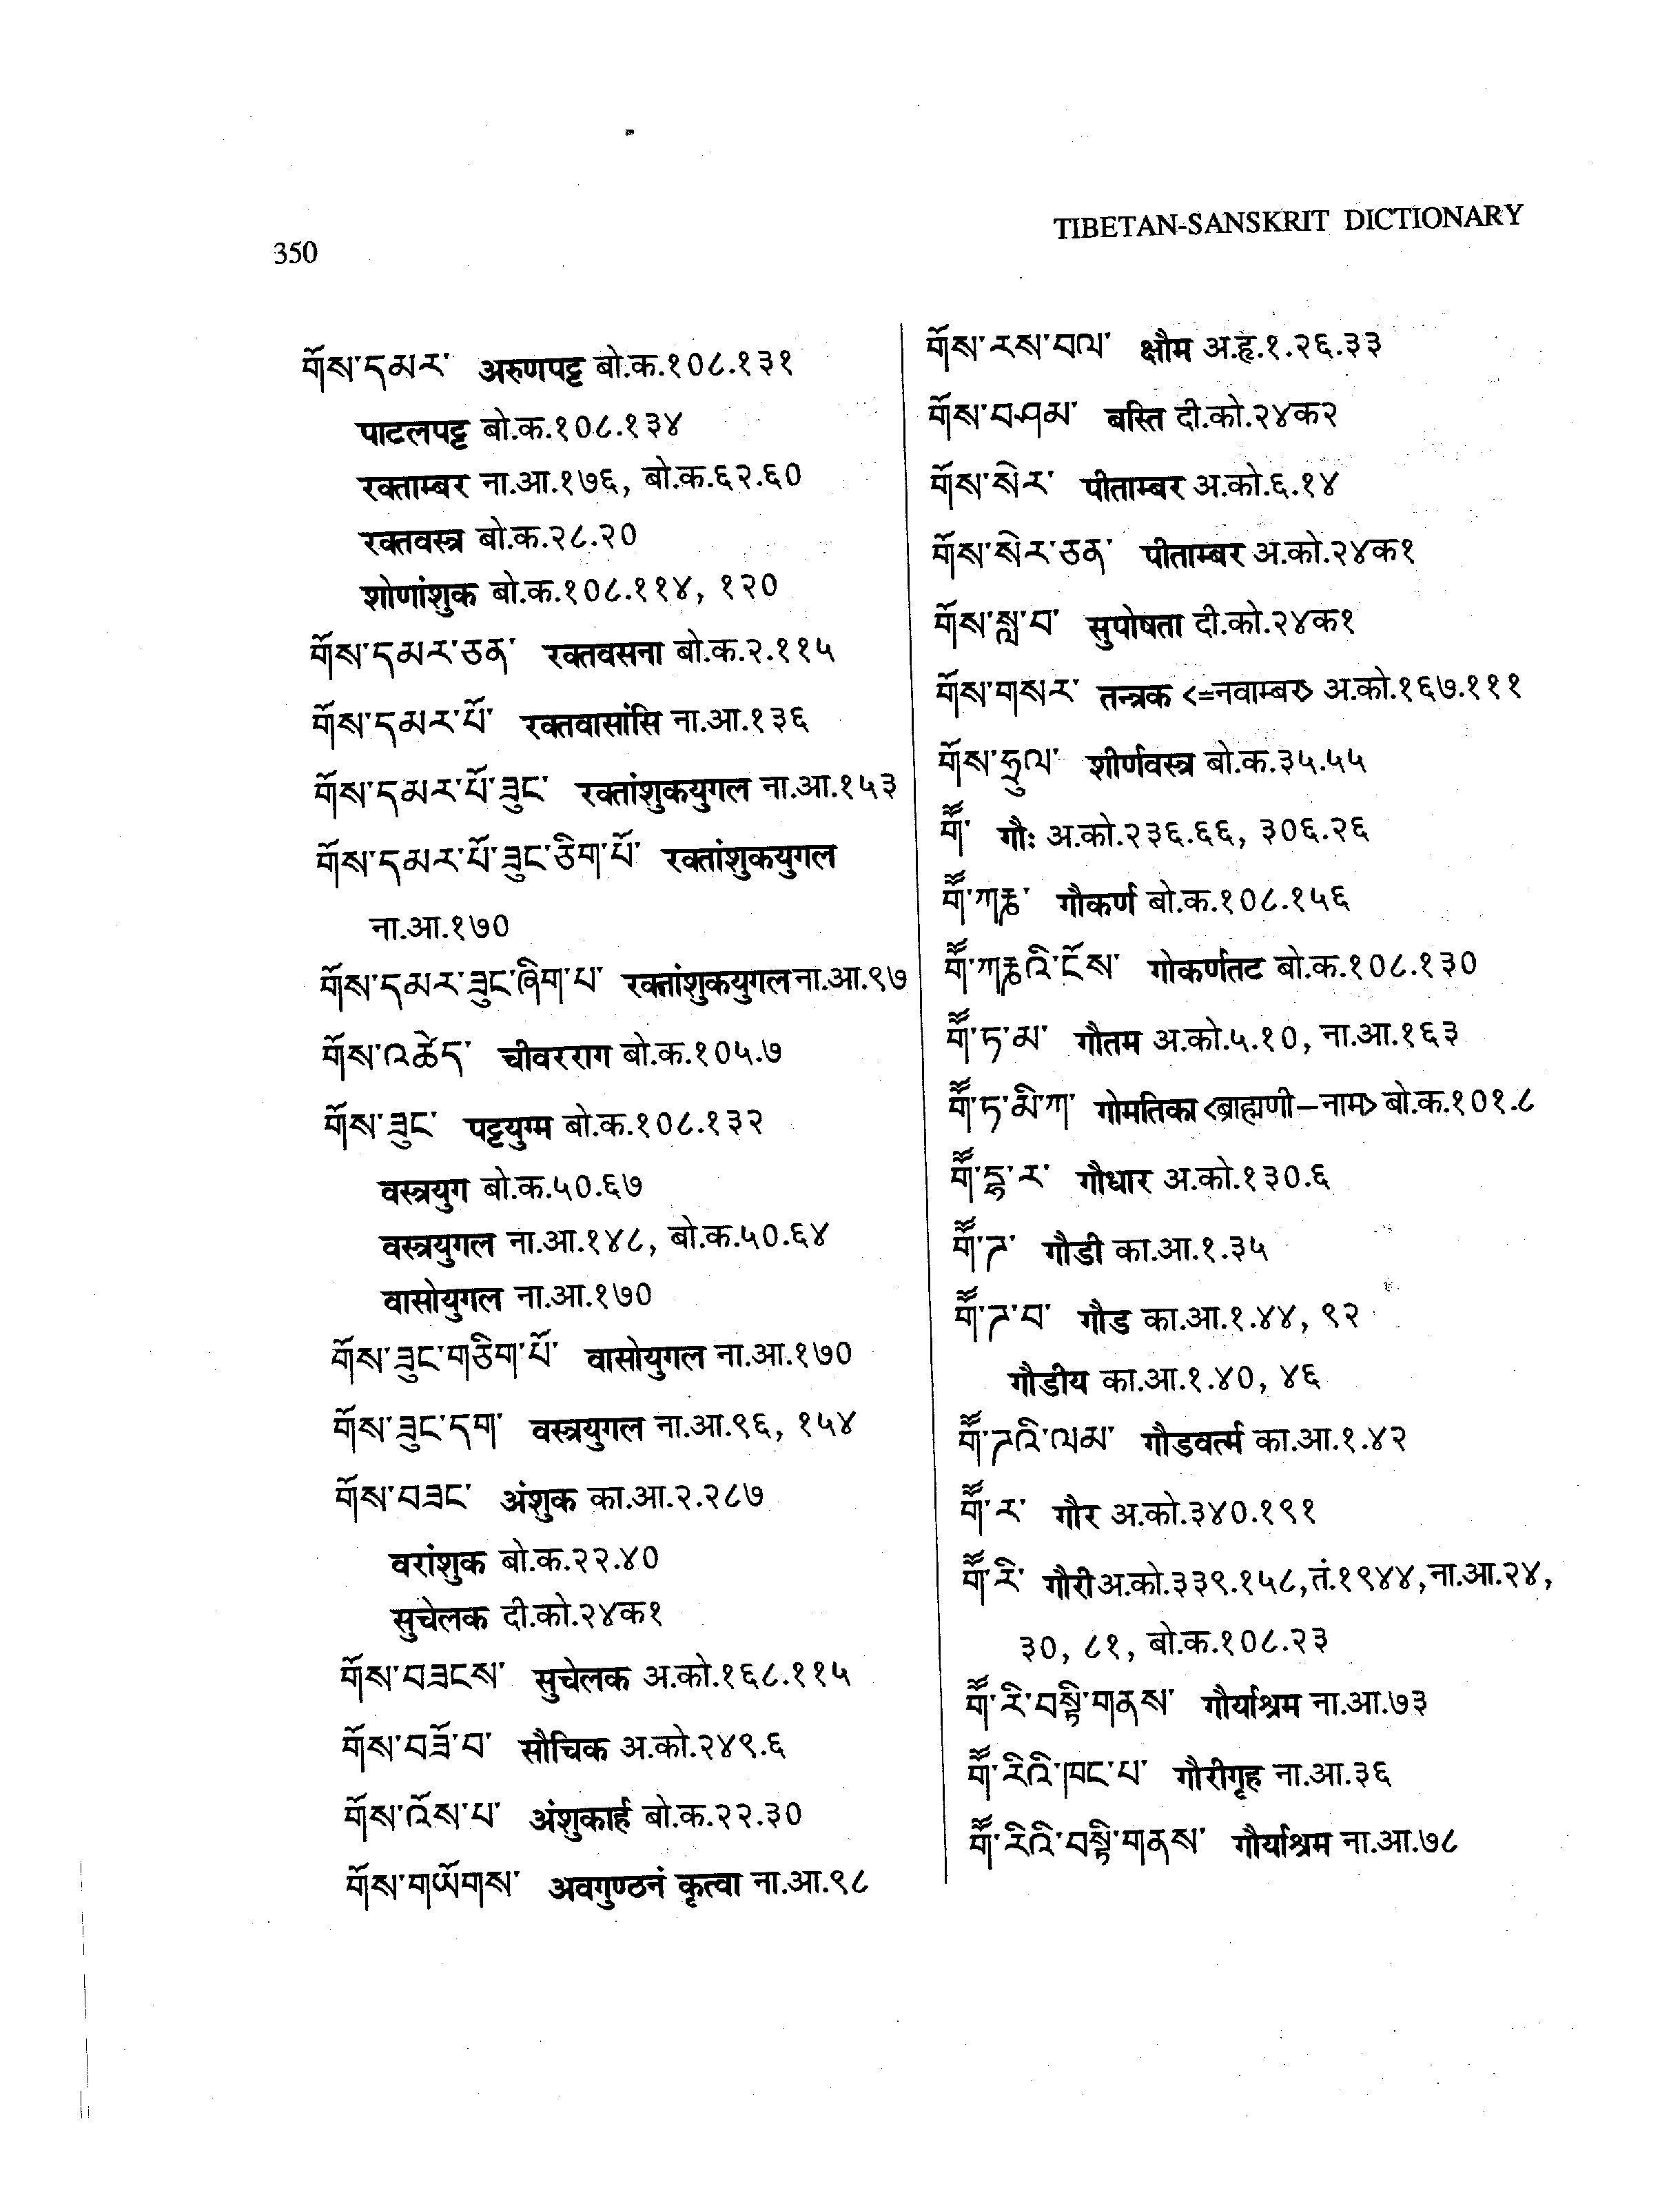 350
TIBETAN-SANSKRIT DICTIONARY
གོས་དམར་ अरुणपट्ट बो.क.१०८.१३१
पाटलपट्ट बो.क.१०८.१३४
रक्ताम्बर ना.आ.१७६, बो.क.६२.६०
रक्तवस्त्र बो.क.२८.२०
शोणांशुक बो.क.१०८.११४, १२०
གོས་དམར་ཅན་ रक्तवसना बो.क.२.११५
གོས་དམར་པོ་ रक्तवासांसि ना.आ.१३६
གོས་དམར་པོ་ཟུང་ रक्तांशुकयुगल ना.आ.१५३
གོས་དམར་པོ་ཟུང་ཅིག་པོ་ रक्तांशुकयुगल
ना.आ.१७०
གོས་དམར་ཟུང་ཞིག་པ་ रक्तांशुकयुगल ना.आ.९७
གོས་འཚེད་ चीवरराग बो.क.१०५.७
གོས་ཟུང་ पट्टयुग्म बो.क.१०८.१३२
वस्त्रयुग बो.क.५०.६७
वस्त्रयुगल ना.आ.१४८, बो.क.५०.६४
वासोयुगल ना.आ.१७०
གོས་ཟུང་གཅིག་པོ་ वासोयुगल ना.आ.१७०
གོས་ཟུང་དག་ वस्त्रयुगल ना.आ.९६, १५४
གོས་བཟང་ अंशुक का.आ.२.२८७
वरांशुक बो.क.२२.४०
सुचेलक दी.को.२४क१
གོས་བཟངས་ सुचेलक अ.को.१६८.११५
གོས་བཟོ་བ་ सौचिक अ.को.२४९.६
གོས་འོས་པ་ अंशुकार्ह बो.क.२२.३०
གོས་གཡོགས་ अवगुण्ठनं कृत्वा ना.आ.९८
གོས་རས་བལ་ क्षौम अ.हृ.१.२६.३३
གོས་བཤམ་ बस्ति दी.को.२४क२
གོས་སེར་ पीताम्बर अ.को.६.१४
གོས་སེར་ཅན་ पीताम्बर अ.को.२४क१
གོས་སླ་བ་ सुपोषता दी.को.२४क१
གོས་གསར་ तन्त्रक <=नवाम्बर> अ.को.१६७.१११
གོས་ཧྲུལ་ शीर्णवस्त्र बो.क.३५.५५
གཽ་ गौः अ.को.२३६.६६, ३०६.२६
གཽ་ཀརྞ་ गौकर्ण बो.क.१०८.१५६
གཽ་ཀརྞའི་ངོས་ गोकर्णतट बो.क.१०८.१३०
གཽ་ཏ་མ་ गौतम अ.को.५.१०, ना.आ.१६३
གཽ་ཏ་མི་ཀ་ गोमतिका <ब्राह्मणी–नाम> बो.क.१०१.८
གཽ་དྷཱ་ར་ गौधार अ.को.१३०.६
གཽ་ཌ་ गौडी का.आ.१.३५
གཽ་ཌ་བ་ गौड का.आ.१.४४, ९२
गौडीय का.आ.१.४०, ४६
གཽ་ཌའི་ལམ་ गौडवर्त्म का.आ.१.४२
གཽ་ར་ गौर अ.को.३४०.१९१
གཽ་རི་ गौरी अ.को.३३९.१५८,तं.१९४४,ना.आ.२४,
३०, ८१, बो.क.१०८.२३
གཽ་རི་བསྟི་གནས་ गौर्याश्रम ना.आ.७३
གཽ་རིའི་ཁང་པ་ गौरीगृह ना.आ.३६
གཽ་རིའི་བསྟི་གནས་ गौर्याश्रम ना.आ.७८